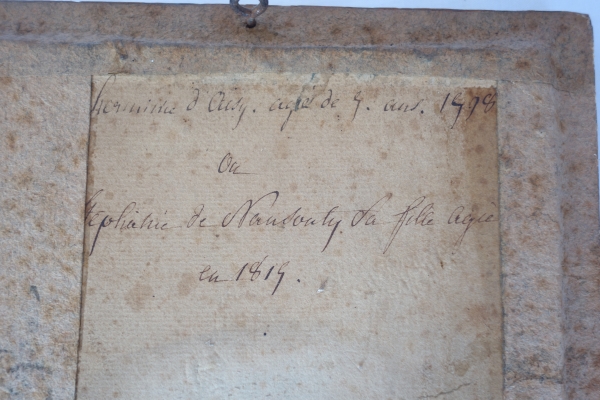 Hermine d'Ausy. agée de 7. ans. 1798
Ou
Stéphanie de Nansouty Sa fille Agée
en 1819.